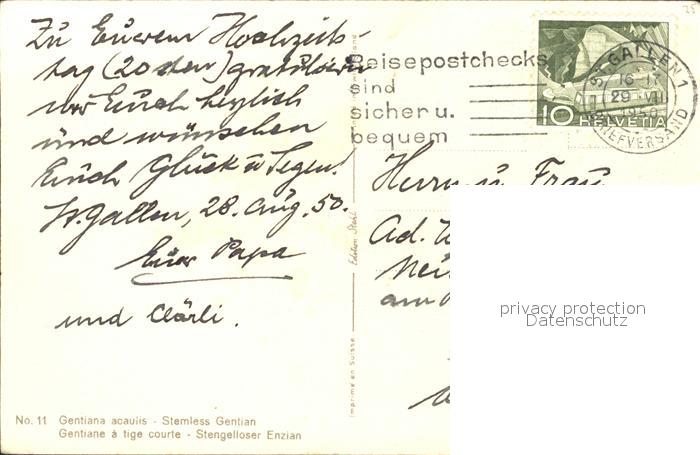 Zu Eurem Hochzeits-
tag (20sten) gratulieren
wir Euch herzlich
und wünschen
Euch Glück u Segen.
St. Gallen, 28. Aug. 50.
Euer Papa
und Clärli.
No. 11 Gentiana acaulis - Stemless Gentian
Gentiane à tige courte - Stengelloser Enzian
Imprimé en Suisse
Edition Stehli
Reisepostchecks
sind
sicher u.
bequem
10 HELVETIA
ST. GALLEN 1
16-17
29. VIII
1950
BRIEFVERSAND
Herrn u Frau
Ad.
am
privacy protection
Datenschutz